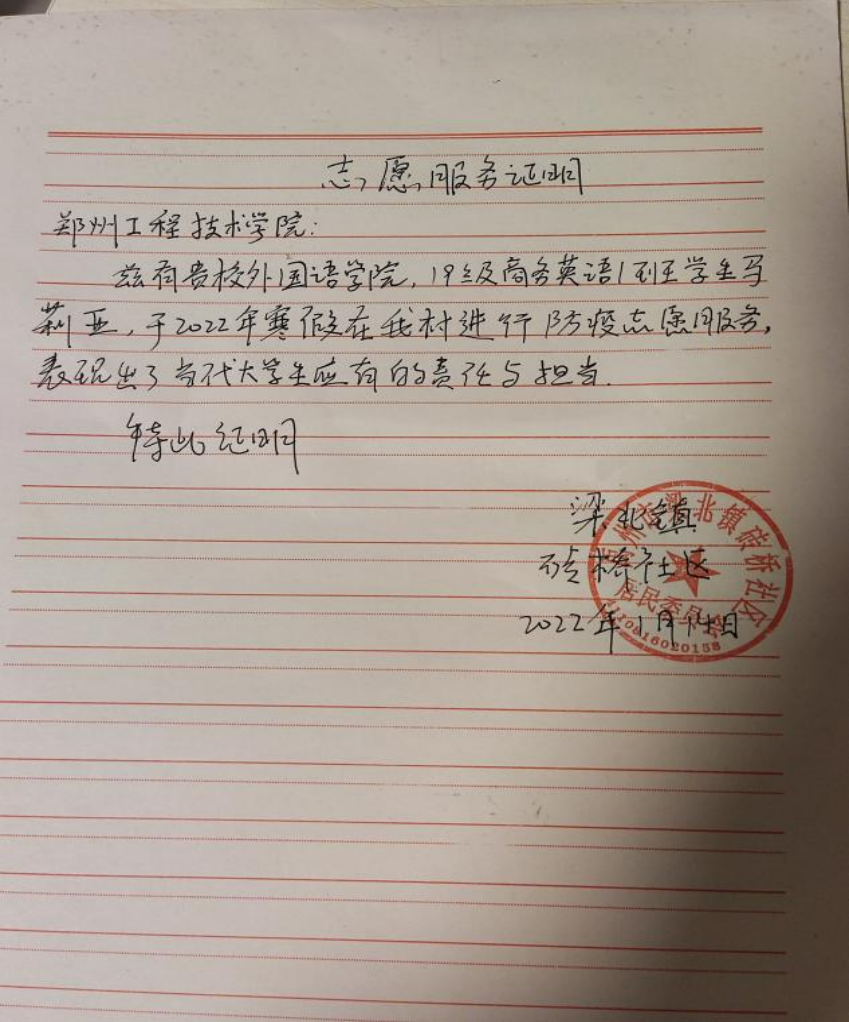 志愿服务证明
郑州工程技术学院：
兹有贵校外国语学院，19级商务英语1班学生马
莉亚，于2022年寒假在我村进行防疫志愿服务，
表现出了当代大学生应有的责任与担当.
特此证明
梁北镇
砖桥社区
2022年1月14日
禹州市梁北镇砖桥社区
居民委员会